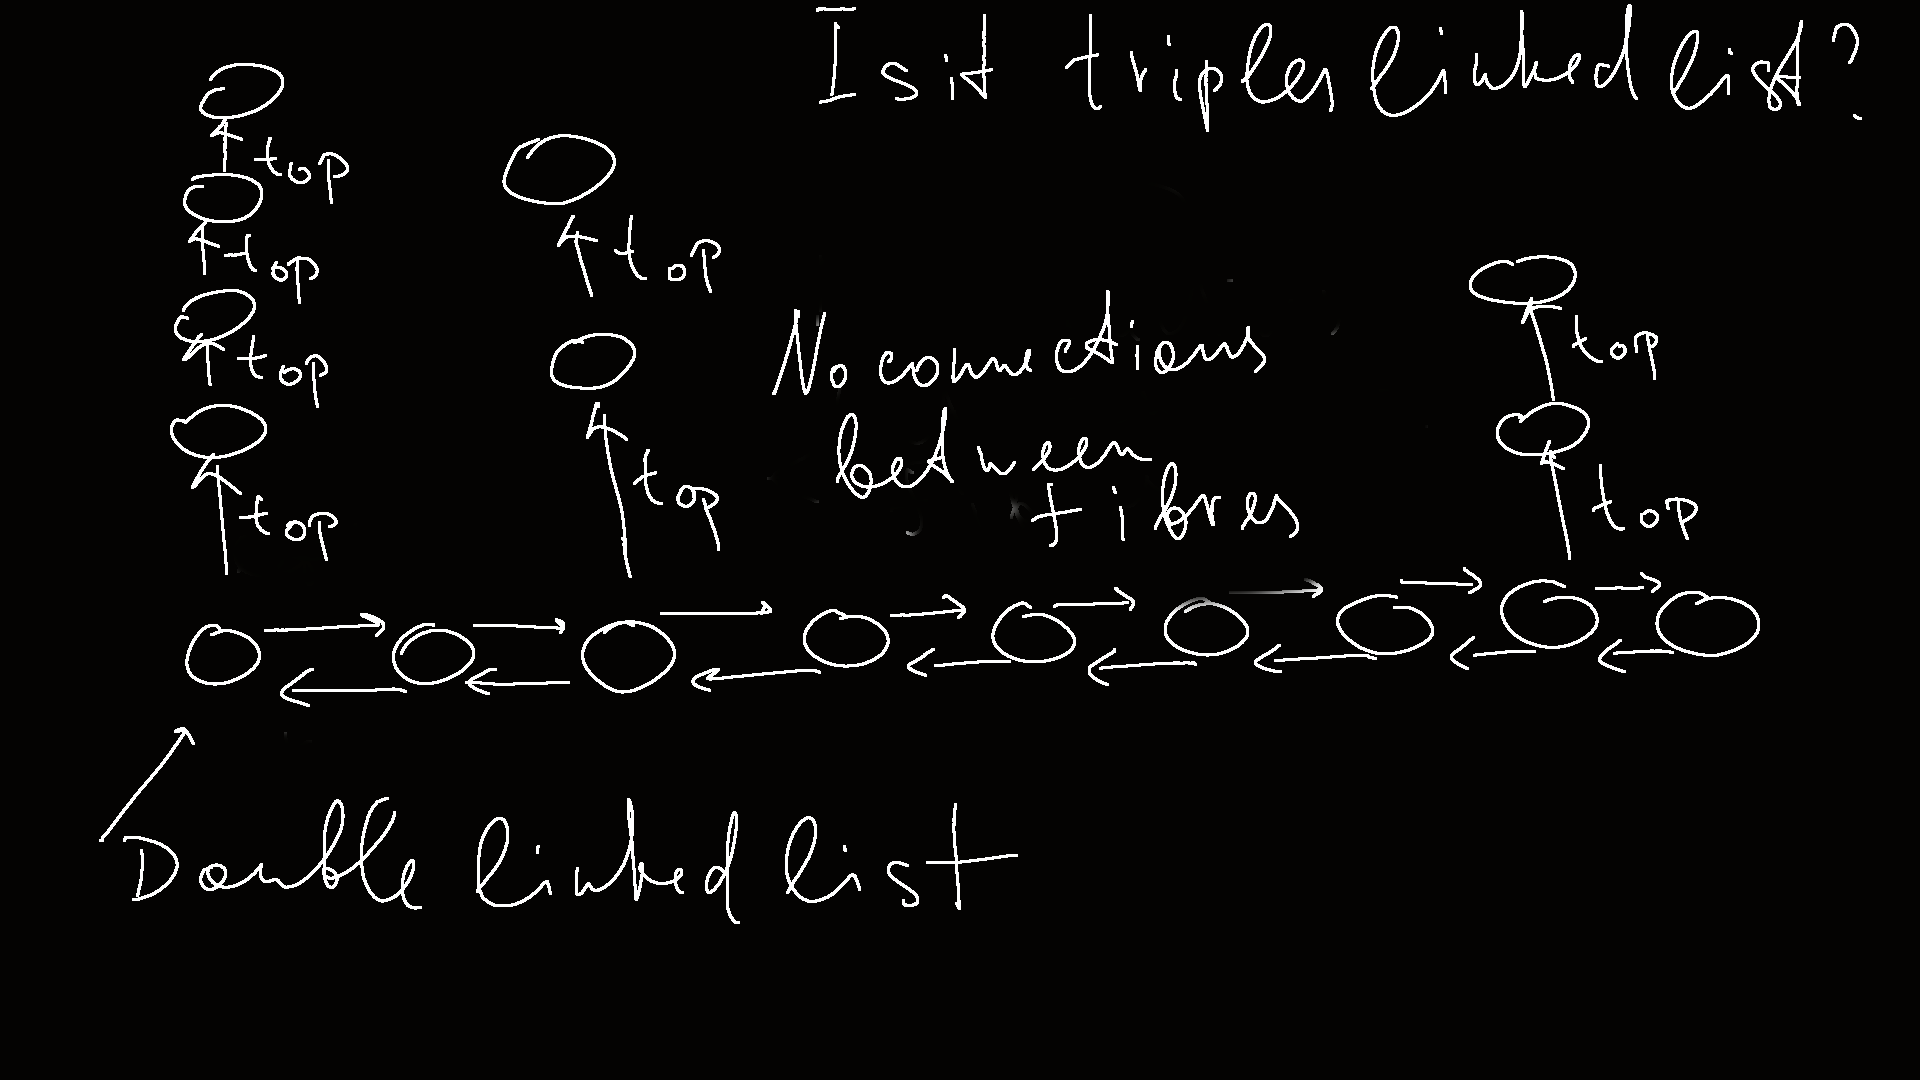 Is it triples linked list?
top
top
top
top
top
top
No connections
between
fibres
top
top
Double linked list